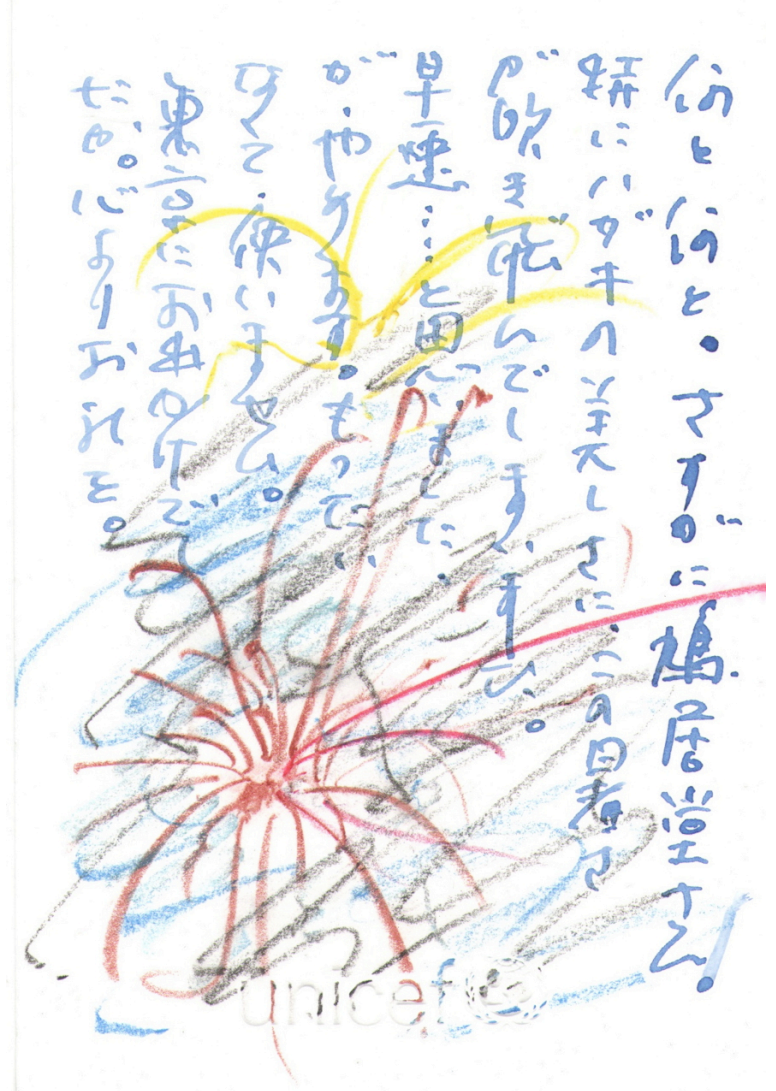 何と何と。さすがに鳩居堂さん!
ハガキの美しさに、この日暑さ
が吹き飛んでしまいました。
早速……と思いました
が、やめます。もったい
なくて、使いません。
東京にお出かけでし
たか。心よりお礼を。
unicef